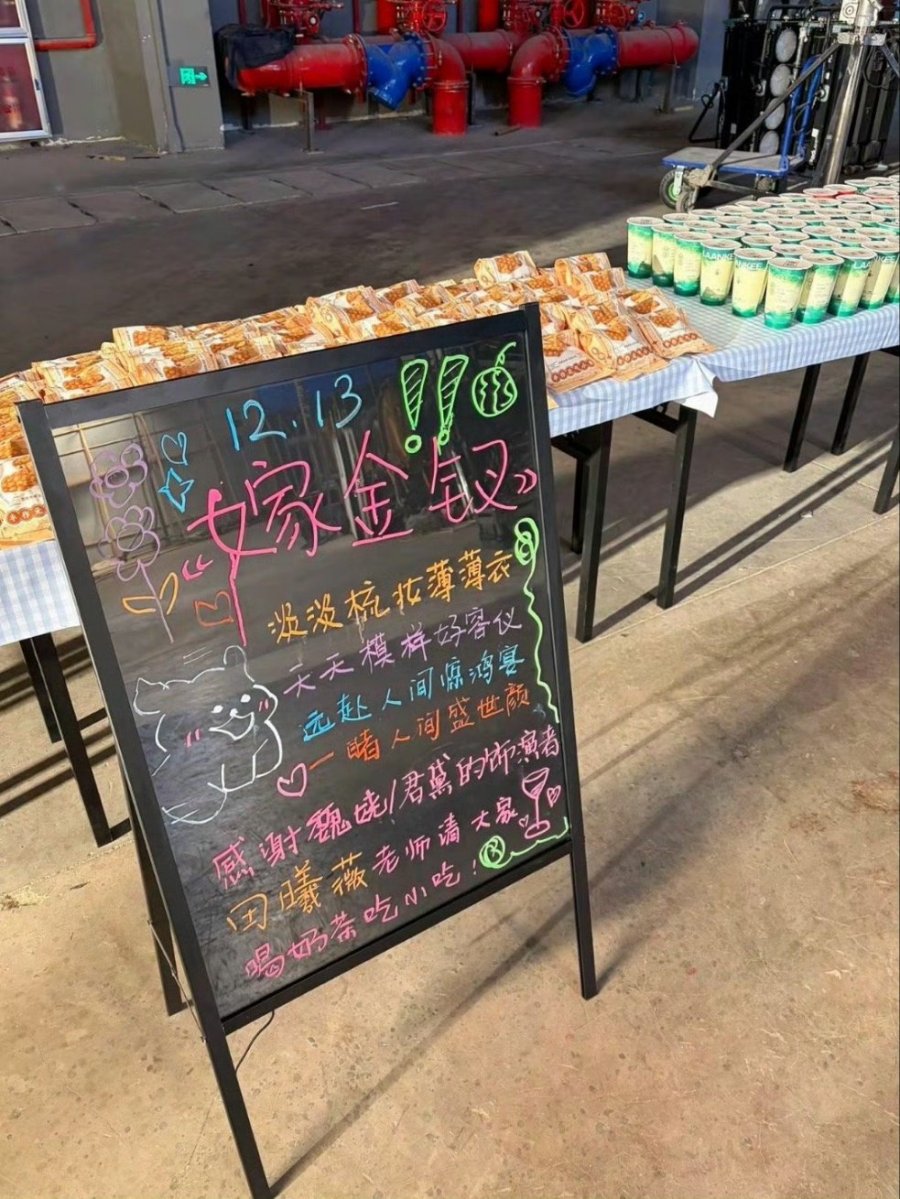 12.13
《嫁金钗》
淡淡梳妆薄薄衣
天天模样好容仪
远赴人间惊鸿宴
一睹人间盛世颜
感谢魏娆/君黛的饰演者
田曦薇老师请大家
喝奶茶吃小吃！
LAANKEE